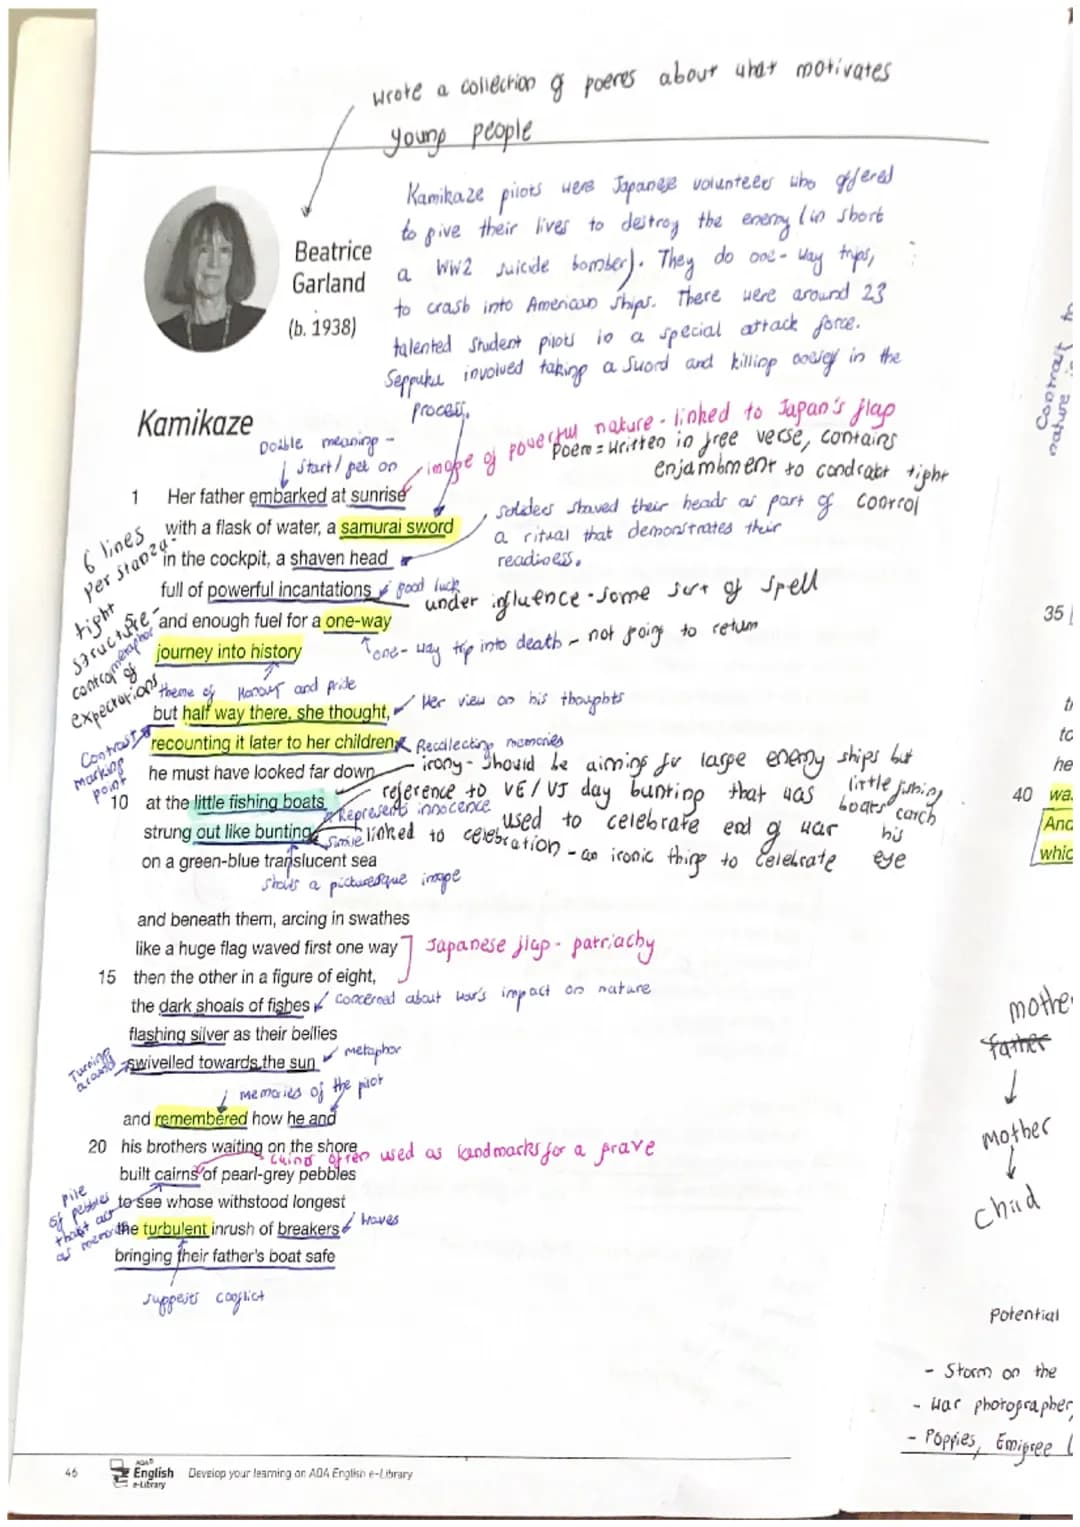 wrote a collection of poems about what motivates
young people
Kamikaze pilots were Japanese volunteers who offered
to give their lives to destroy the enemy (in short
a WW2 suicide bomber). They do one-way trips,
to crash into American ships. There were around 23
talented student pilots in a special attack force.
Seppuku involved taking a sword and killing in the
process.
Beatrice
Garland
(b. 1938)
Kamikaze
Double meaning -
start / get on
image of powerful nature - linked to Japan's flag
Poem = written in free verse, contains
enjambment to contrast tight
control
1 Her father embarked at sunrise
with a flask of water, a samurai sword
in the cockpit, a shaven head
full of powerful incantations
and enough fuel for a one-way
journey into history
soldiers shaved their heads as part of
a ritual that demonstrates their
readiness.
good luck
under influence - some sort of spell
one-way trip into death - not going to return
6 lines
per stanza -
tight
structure -
control of
expectations
metaphor
theme of Honour and pride
but half way there, she thought,
recounting it later to her children,
he must have looked far down
10 at the little fishing boats
strung out like bunting
on a green-blue translucent sea
Her view on his thoughts
Recollecting memories
Contrast
marking
point
irony - should be aiming for large enemy ships but
little fishing
boats catch
his
eye
reference to VE/VJ day bunting that was
used to celebrate end of war
Represents innocence
simile
linked to celebration - an ironic thing to celebrate
shows a picturesque image
and beneath them, arcing in swathes
like a huge flag waved first one way
15 then the other in a figure of eight,
the dark shoals of fishes
flashing silver as their bellies
swivelled towards the sun
Japanese flag - patriachy
concerned about war's impact on nature
Turning
around
metaphor
memories of the pilot
and remembered how he and
20 his brothers waiting on the shore
built cairns of pearl-grey pebbles
to see whose withstood longest
the turbulent inrush of breakers
bringing their father's boat safe
often used as landmarks for a grave
pile
of pebbles
that act
as
waves
suggests conflict
46
AQA
English
e-Library
Develop your learning on AQA English e-Library
Contrast
nature
35
to
he
40 wa
And
whic
mother
father
mother
child
Potential
- Storm on the
- War photographer,
- Poppies, Emigree